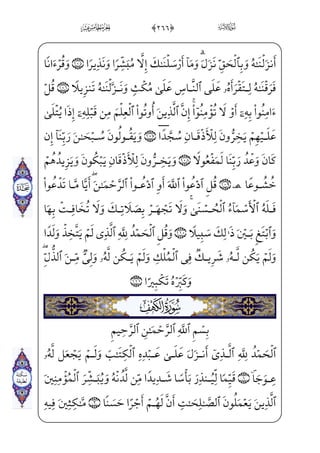 سُورَةُ الإِسْرَاءِ ﴿٢٦٦﴾
أَنزَلْنَٰهُ وَبِٱلْحَقِّ نَزَلَ ۗ وَمَآ أَرْسَلْنَٰكَ إِلَّا مُبَشِّرًا وَنَذِيرًا ١٠٥ وَقُرْءَانًا
فَرَقْنَٰهُ لِتَقْرَأَهُۥ عَلَى ٱلنَّاسِ عَلَىٰ مُكْثٍ وَنَزَّلْنَٰهُ تَنزِيلًا ١٠٦ قُلْ
ءَامِنُوا۟ بِهِۦٓ أَوْ لَا تُؤْمِنُوٓا۟ ۚ إِنَّ ٱلَّذِينَ أُوتُوا۟ ٱلْعِلْمَ مِن قَبْلِهِۦٓ إِذَا يُتْلَىٰ
عَلَيْهِمْ يَخِرُّونَ لِلْأَذْقَانِ سُجَّدًا ١٠٧ وَيَقُولُونَ سُبْحَٰنَ رَبِّنَآ إِن
كَانَ وَعْدُ رَبِّنَا لَمَفْعُولًا ١٠٨ وَيَخِرُّونَ لِلْأَذْقَانِ يَبْكُونَ وَيَزِيدُهُمْ
خُشُوعًا ١٠٩ قُلِ ٱدْعُوا۟ ٱللَّهَ أَوِ ٱدْعُوا۟ ٱلرَّحْمَٰنَ ۖ أَيًّا مَّا تَدْعُوا۟
فَلَهُ ٱلْأَسْمَآءُ ٱلْحُسْنَىٰ ۚ وَلَا تَجْهَرْ بِصَلَاتِكَ وَلَا تُخَافِتْ بِهَا
وَٱبْتَغِ بَيْنَ ذَٰلِكَ سَبِيلًا ١١٠ وَقُلِ ٱلْحَمْدُ لِلَّهِ ٱلَّذِى لَمْ يَتَّخِذْ وَلَدًا
وَلَمْ يَكُن لَّهُۥ شَرِيكٌ فِى ٱلْمُلْكِ وَلَمْ يَكُن لَّهُۥ وَلِىٌّ مِّنَ ٱلذُّلِّ ۖ
وَكَبِّرْهُ تَكْبِيرًۢا ١١١
سُورَةُ الكَهْفِ
بِسْمِ ٱللَّهِ ٱلرَّحْمَٰنِ ٱلرَّحِيمِ
ٱلْحَمْدُ لِلَّهِ ٱلَّذِىٓ أَنزَلَ عَلَىٰ عَبْدِهِ ٱلْكِتَٰبَ وَلَمْ يَجْعَل لَّهُۥ
عِوَجَا ١ قَيِّمًا لِّيُنذِرَ بَأْسًا شَدِيدًا مِّن لَّدُنْهُ وَيُبَشِّرَ ٱلْمُؤْمِنِينَ
ٱلَّذِينَ يَعْمَلُونَ ٱلصَّٰلِحَٰتِ أَنَّ لَهُمْ أَجْرًا حَسَنًا ٢ مَّٰكِثِينَ فِيهِ